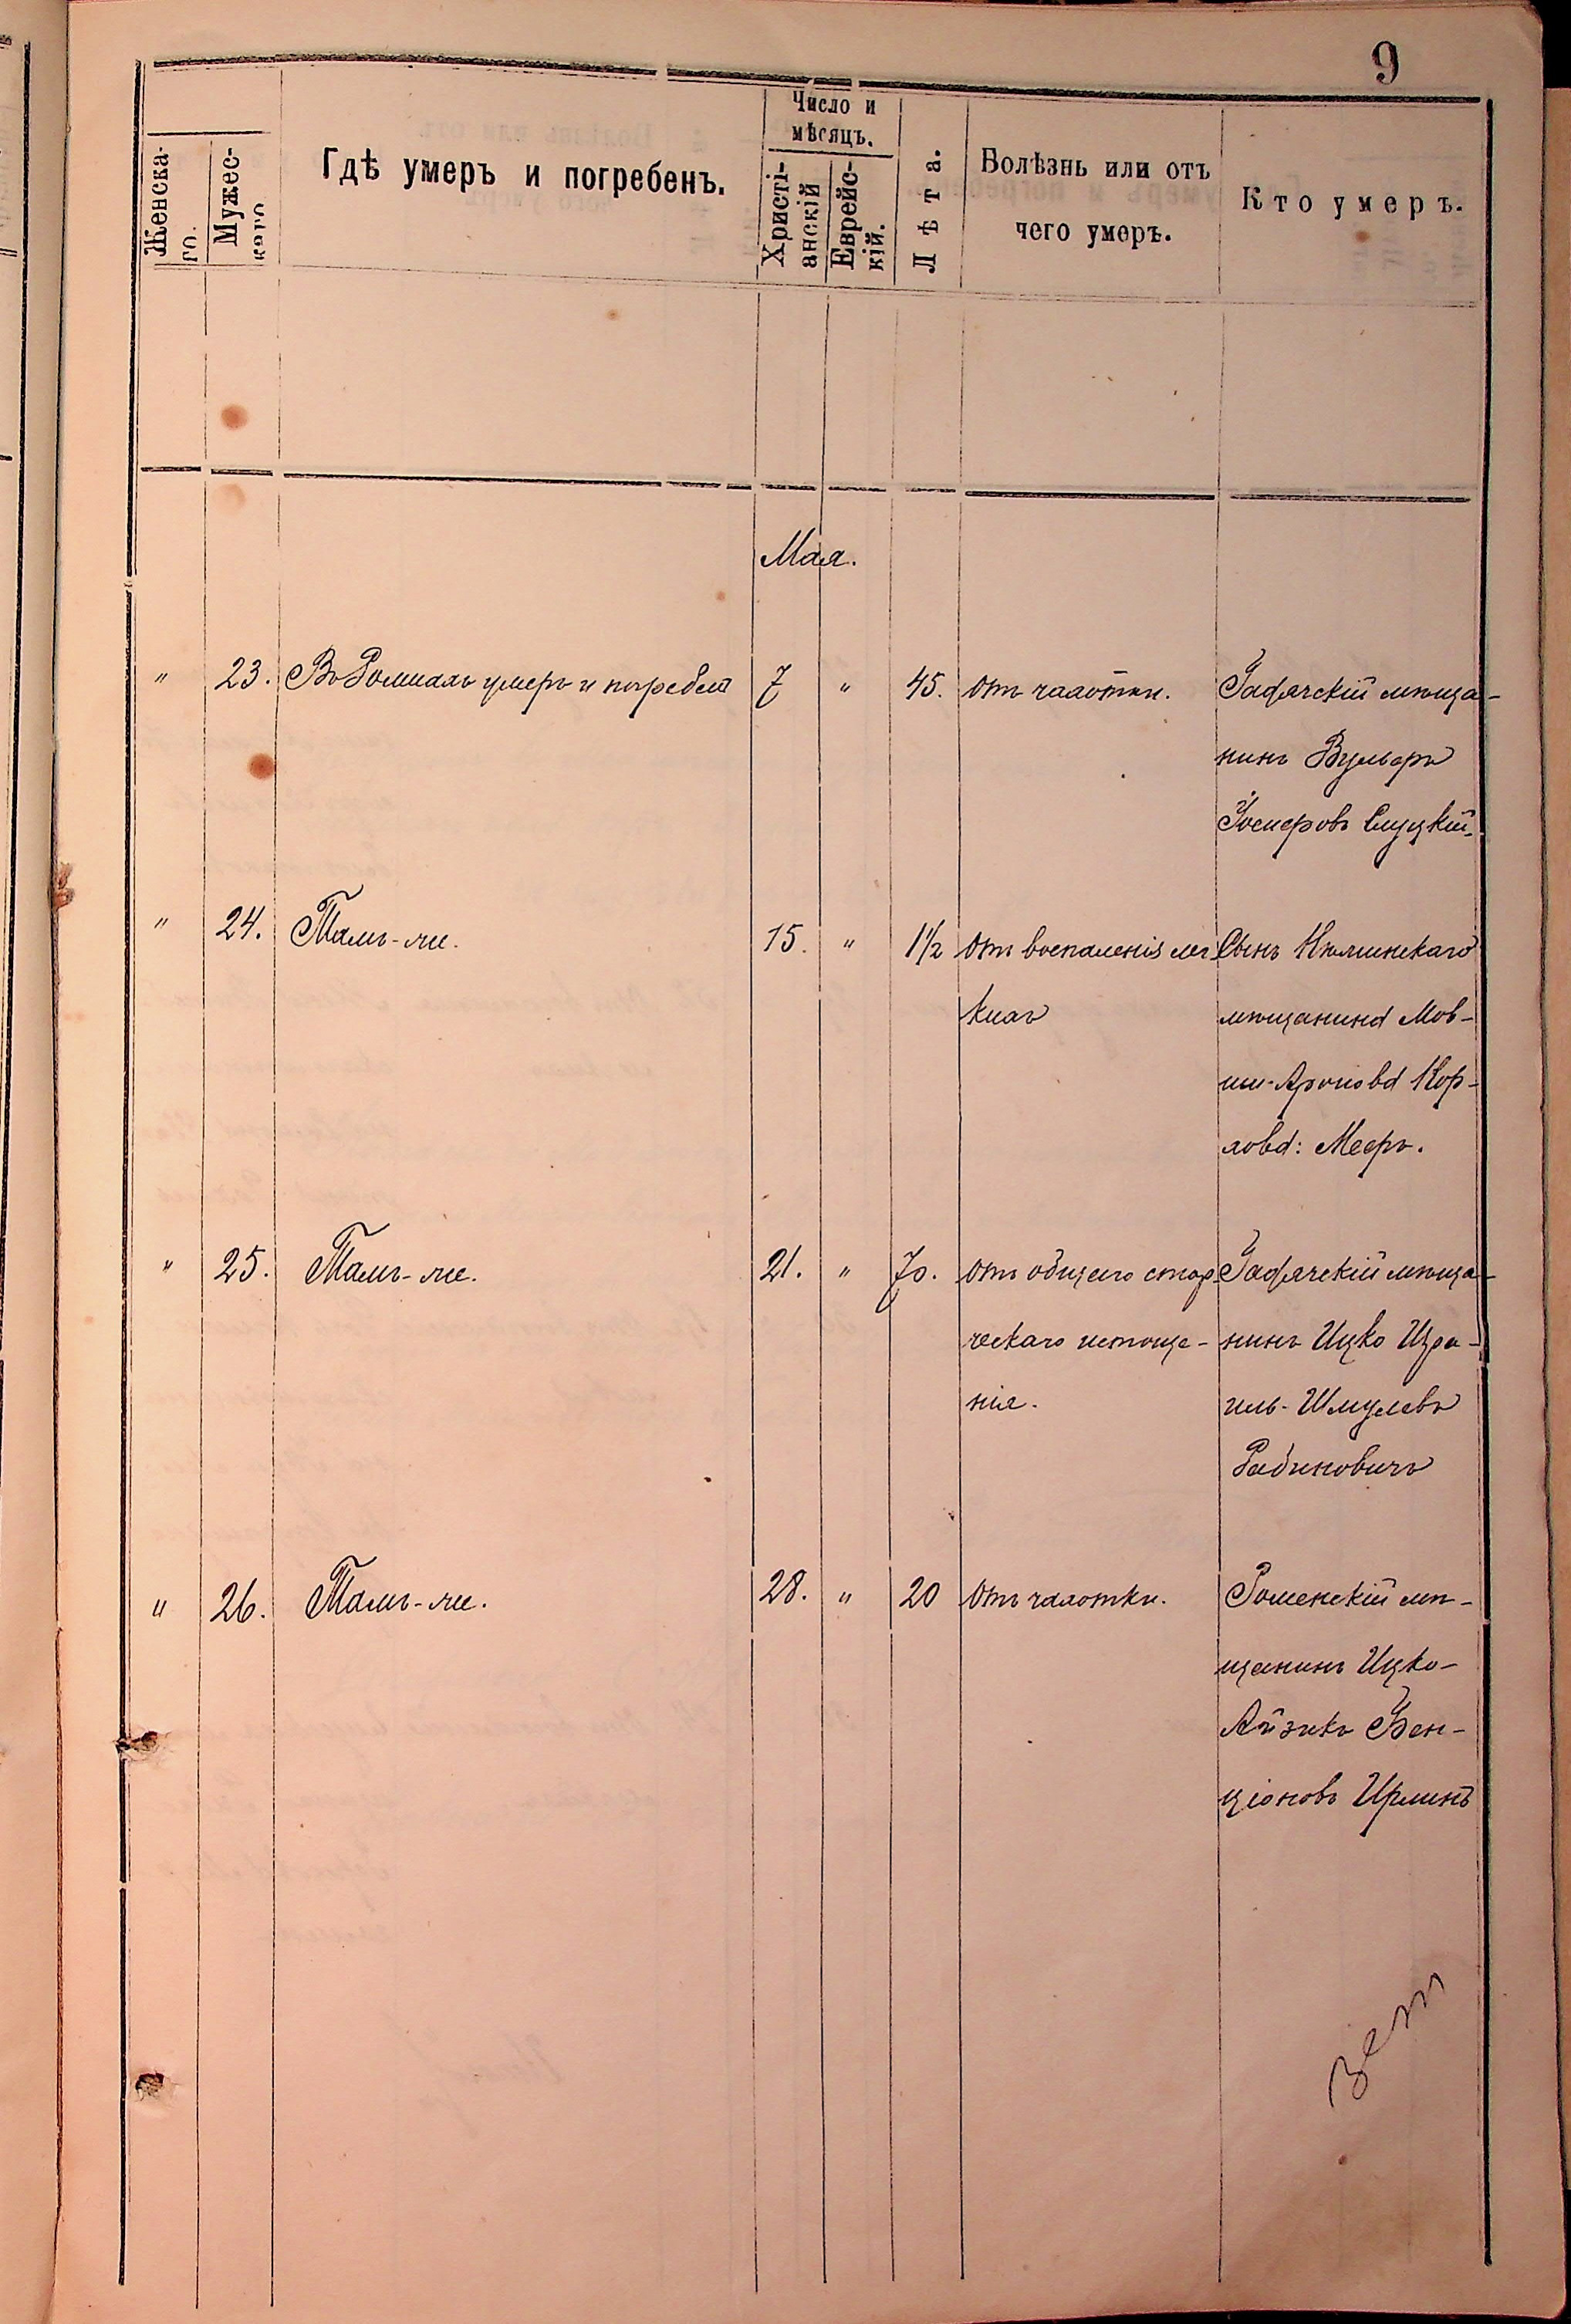 9
Женска-
го.
Мужес-
каго
Гдѣ умеръ и погребенъ.
Число и
мѣсяцъ.
Христі-
анскій
Еврейс-
кій.
Лѣта.
Болѣзнь или отъ
чего умеръ.
Кто умеръ.
Мая.
" 23. Въ Ромнахъ умеръ и погребенъ 7 " 45. отъ чахотки. Гадячскій мѣща-
нинъ Вульфъ
Іосифовъ Слуцкій.
" 24. Тамъ-же. 15. " 1 1/2 отъ воспаленія лег Сынъ
кихъ мѣщанина Мов-
ши-Аронова Кор-
хова: Мееръ.
" 25. Тамъ-же. 21. " 70. отъ общаго стар- Гадячскій мѣща-
ческаго истоще- нинъ Ицко Изра-
нія. иль-Шмулевъ
Рабиновичъ
" 26. Тамъ-же. 28. " 20 отъ чахотки. Роменскій мѣ-
щанинъ Ицко-
Айзикъ Бен-
ціоновъ